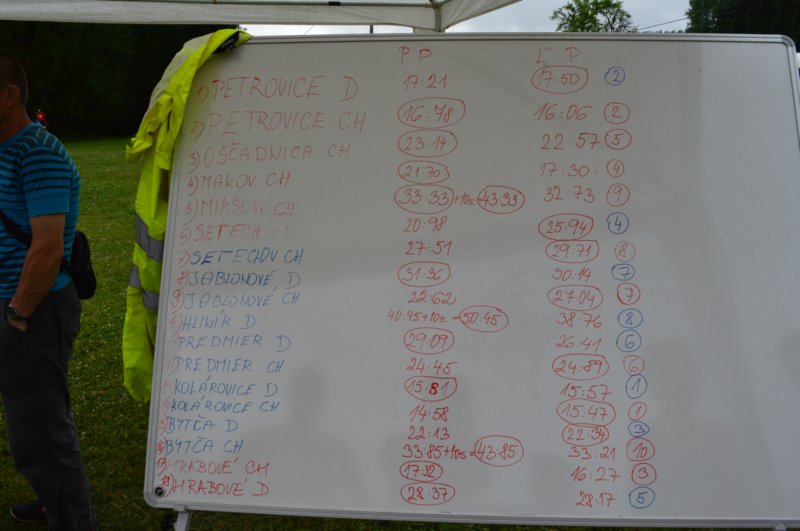 P.P. Ľ P.
1) PETROVICE D 17:21 17:50 2
2) PETROVICE CH 16:78 16:06 2
3) OŠČADNICA CH 23:14 22:57 5
4) MAKOV CH 21:70 17:30 4
5) MIKŠOVÉ CH 33:33+10s 43:33 32:73 9
6) SETECHOV 20:98 25:94 4
7) SETECHOV CH 27:51 29:71 8
8) JABLONOVÉ D 31:36 30:14 7
9) JABLONOVÉ CH 22:62 27:04 7
HLINÍK D 40:45+10s = 50:45 38:76 8
PREDMIER D 29:09 26:41 6
PREDMIER CH 24:45 24:89 6
KOLÁROVICE D 15:81 15:57 1
KOLÁROVICE CH 14:58 15:47 1
BYTČA D 22:13 22:34 3
BYTČA CH 33:85+10s = 43:85 33:21 10
HRABOVÉ CH 17:32 16:27 3
HRABOVÉ D 28:37 28:17 5